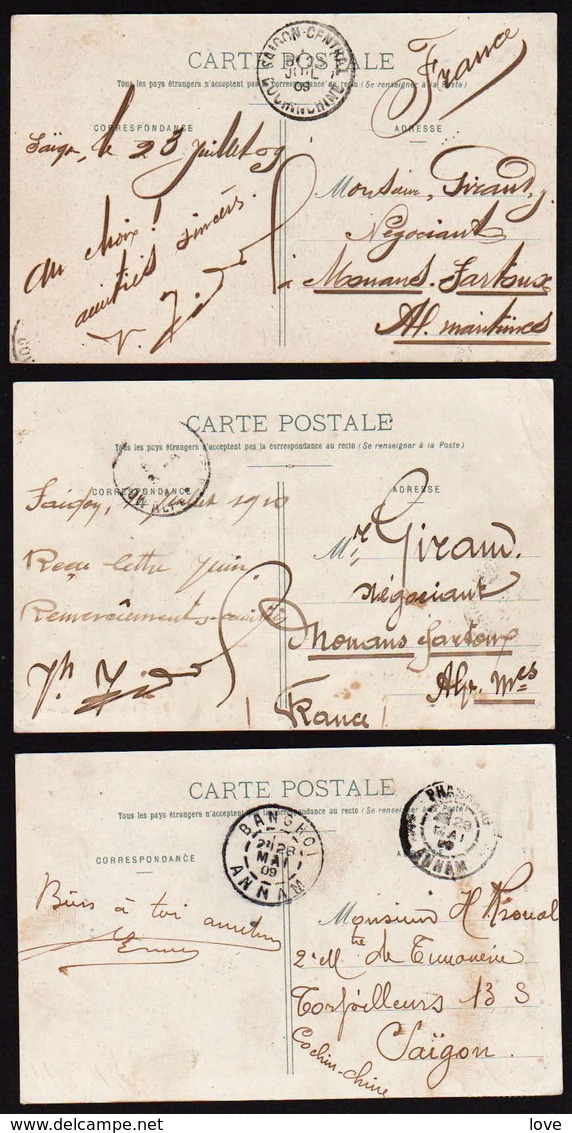 CARTE POSTALE
Tous les pays étrangers n'acceptent pas la correspondance au recto (Se renseigner à la Poste)
SAIGON-CENTRAL
JUIL
09
COCHINCHINE
France
CORRESPONDANCE
ADRESSE
Saïgon, le 23 juillet 09
au choix!
amitiés sincères.
Monsieur Giraud
Négociant
à Mouans-Sartoux
Al. maritimes
CARTE POSTALE
Tous les pays étrangers n'acceptent pas la correspondance au recto (Se renseigner à la Poste)
CORRESPONDANCE
ADRESSE
Saigon, juillet 1910
Reçu lettre Juin
Remerciements
Mr Giraud.
Négociant
Mouans Sartoux
Alp. Mes
France
CARTE POSTALE
Tous les pays étrangers n'acceptent pas la correspondance au recto (Se renseigner à la Poste)
BANGHOI
28
MAI
09
ANNAM
MAI
ANNAM
CORRESPONDANCE
Bien à toi
Monsieur H
2e Mtre de
Torpilleurs 13 S
Saïgon.
Cochin-chine
love